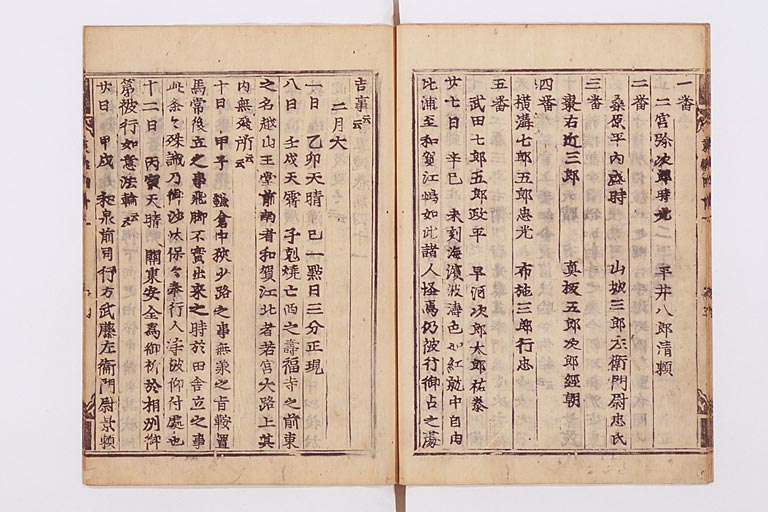 一番
二宮弥次郎時光 平井八郎清頼
二番
桑原平内盛時 山城三郎左衛門尉忠氏
三番
橐右近三郎 真板五郎次郎経朝
四番
横溝七郎五郎忠光 布施三郎行忠
五番
武田七郎五郎政平 早河次郎太郎祐泰
廿七日 辛巳 未刻海濱波濤色如紅就中自由
比浦至和賀江嶋如此諸人怪焉仍被行御占之蕩
吉事云云
二月大
一日 乙卯天晴 巳一點日三分正現
八日 壬戌天霽 子剋燒亡西之壽福寺之前東
之名越山王堂前南者和賀江北者若宮大路上其
内無殘所云云
十日 甲子 鎌倉中狹少路之事無衆之旨鞍置
馬常後立之事飛脚不實出來之時於田舎立之事
此条々殊誡乃俾沙汰保々奉行人等被仰付處也
十二日 丙寅天晴 關東安全為御祈於相州御
第被行如意法輪云云
廿日 甲戌 和泉前司行方武藤左衛門尉景頼